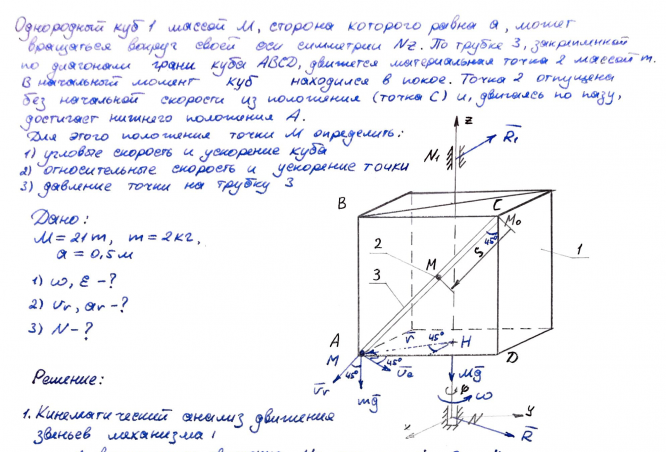 Однородный куб 1 массой М, сторона которого равна а, может
вращаться вокруг своей оси симметрии Nz. По трубке 3, закрепленной
по диагонали грани куба ABCD, движется материальная точка 2 массой m.
В начальный момент куб находился в покое. Точка 2 отпущена
без начальной скорости из положения (точка С) и, двигаясь по пазу,
достигает нижнего положения А.
Для этого положения точки М определить:
1) угловые скорость и ускорение куба
2) относительные скорость и ускорение точки
3) давление точки на трубку 3
Дано:
M = 21m, m = 2кг,
a = 0,5м
1) ω, ε - ?
2) v̅r, ar - ?
3) N - ?
Решение:
1. Кинематический анализ движения
звеньев механизма:
z
R̅1
N1
B
C
M0
45°
S
1
2
M
3
A
M
r̅
45°
H
D
45°
v̅e
45°
v̅r
mg̅
Mg̅
φ
ω
N
x
y
R̅